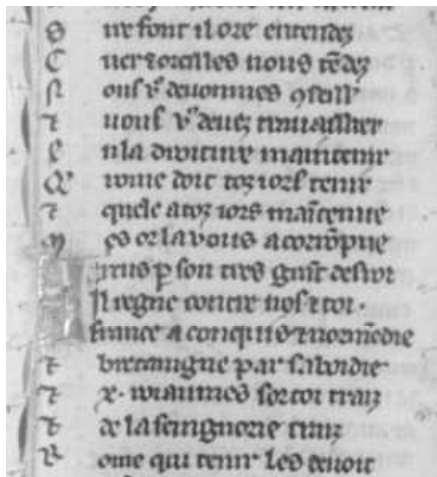 S ire font il ore entendez
C uer et oreilles nous tēdez
N ous vͦ deuommes ꝯseillͬ
⁊ vous vͦ deuez trauaillier
E n la droiture maintenir
Qͤ rome doit toz iors tenir
⁊ quele a toz iors maītenue
M es or la vous a corōpue
Artus ꝑ son tres gͣnt desroi
Il regne contre nos ⁊ toi.
france a conquis ⁊ normēdie
⁊ bretaigne par sa boidie
⁊ .x. roiaumes sor toi traiz
⁊ de la seingnorie traiz
R ome qui tenir les deuoit